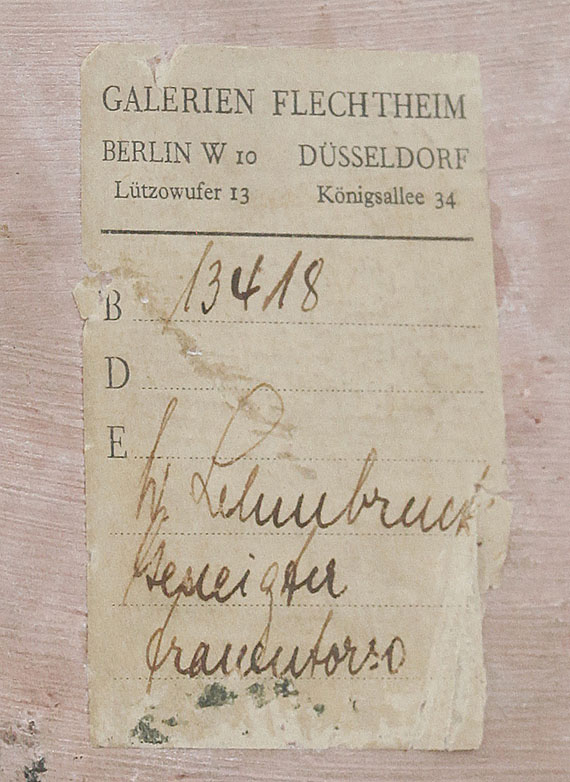 GALERIEN FLECHTHEIM
BERLIN W 10 DÜSSELDORF
Lützowufer 13 Königsallee 34
B 13418
D
E
W. Lehmbruck
Geneigter
Frauentorso